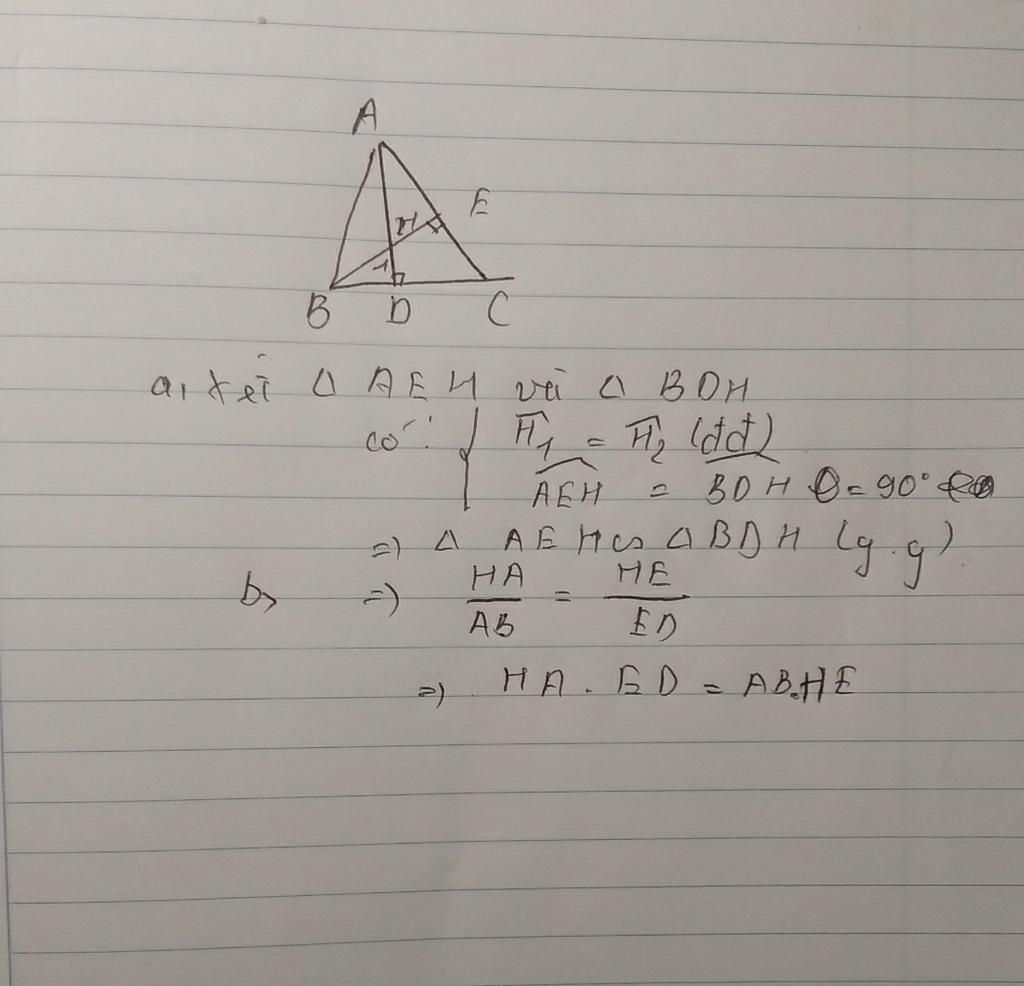 A
E
H
1
B D C
a, xét Δ AEH với Δ BDH
có: { Ĥ₁ = Ĥ₂ (đđ)
AEH = BDH = 90°
=) Δ AEH ∽ Δ BDH (g.g)
b, =) HA/AB = HE/ED
=) HA . ED = AB.HE